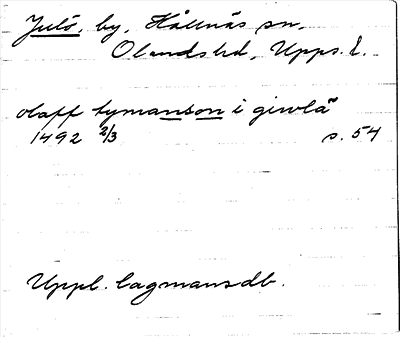 Julö, by, Hållnäs sn,
Olands hd, Upps. l.
olaff tymanson i giwlä
1492 2/3 s. 54
Uppl. lagmansdb.